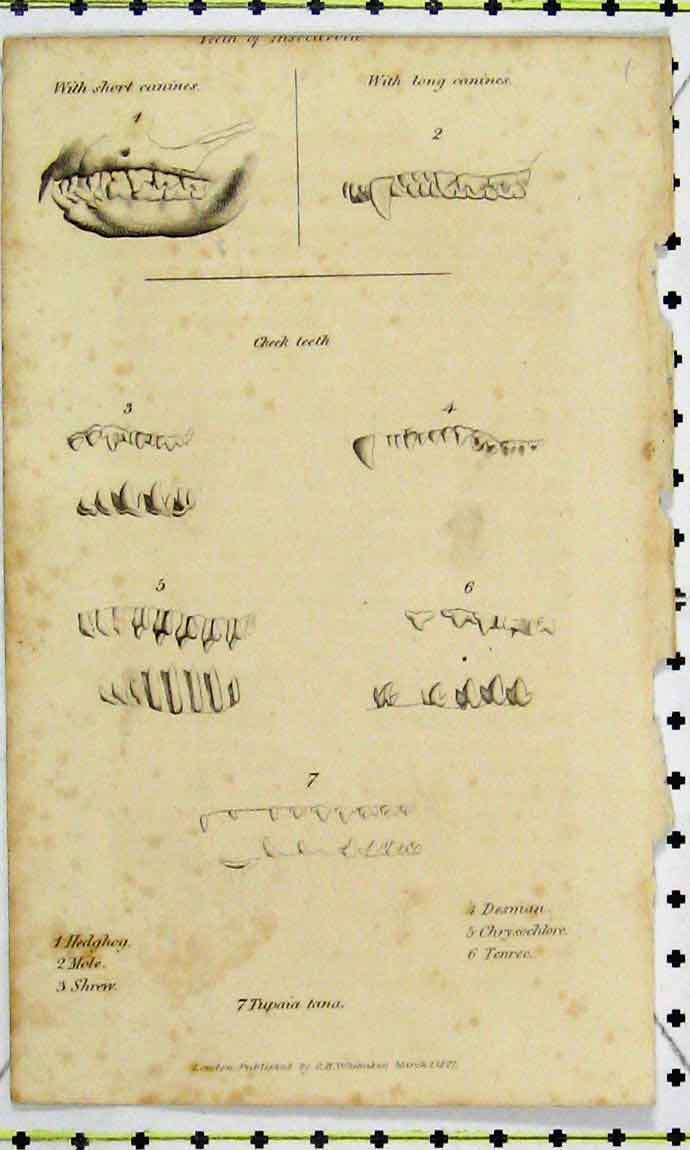 Teeth of Insectivora
With short canines.
With long canines.
1
2
Cheek teeth
3
4
5
6
7
1 Hedghog.
2 Mole.
3 Shrew.
4 Desman.
5 Chrysochlore.
6 Tenrec.
7 Tupaia tana.
London Published by G.B. Whittaker March 1827.